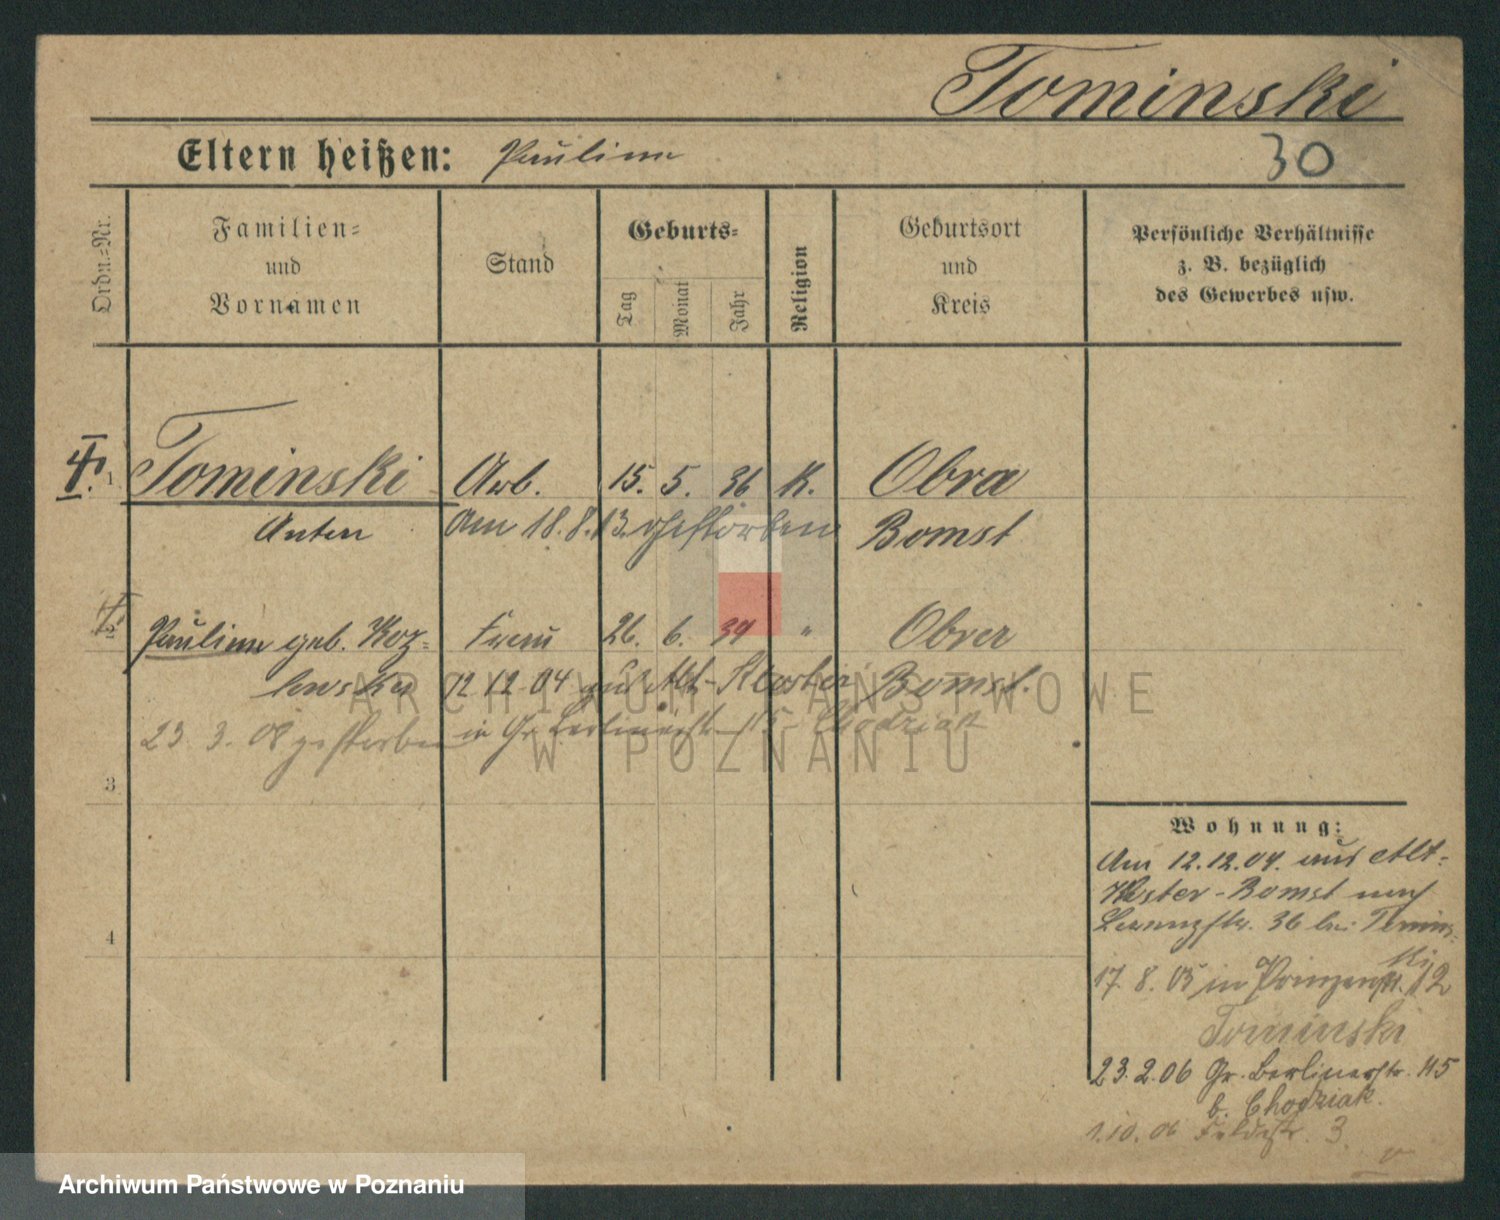 Tominski
Eltern heißen: Pauline
30
Ordn.-Nr.
Familien-
und
Vornamen
Stand
Geburts-
Tag
Monat
Jahr
Religion
Geburtsort
und
Kreis
Persönliche Verhältnisse
z. B. bezüglich
des Gewerbes usw.
† 1 Tominski Arb. 15. 5. 36 K. Obra
Anton Am 18.8.13. gestorben Bomst
† 2 Pauline geb. Koz- Frau 26. 6. 39 " Obra
lowska 12 12 04 aus Alt-Kloster Bomst.
23 3. 08 gestorben in Gr Berlinerstr 115 Chodziak
3
4
Wohnung:
Am 12.12.04. aus Alt-
Kloster-Bomst nach
36 bei Tomins-
ki
17. 8. 05 in Prinzenstr. 12
Tominski
23.2.06 Gr. Berlinerstr. 115
b. Chodziak.
1.10.06 Feldstr. 3
ARCHIWUM PAŃSTWOWE
W POZNANIU
Archiwum Państwowe w Poznaniu